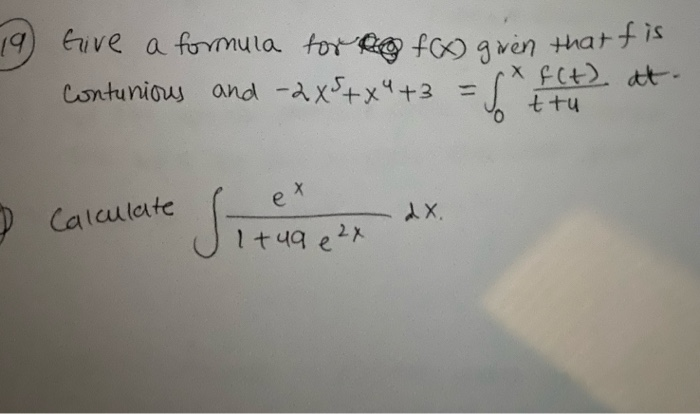 19) Give a formula for f(x) given that f is
contunious and -2x⁵+x⁴+3 = ∫₀ˣ f(t)/(t+4) dt.
Calculate ∫ eˣ/(1+49e²ˣ) dx.